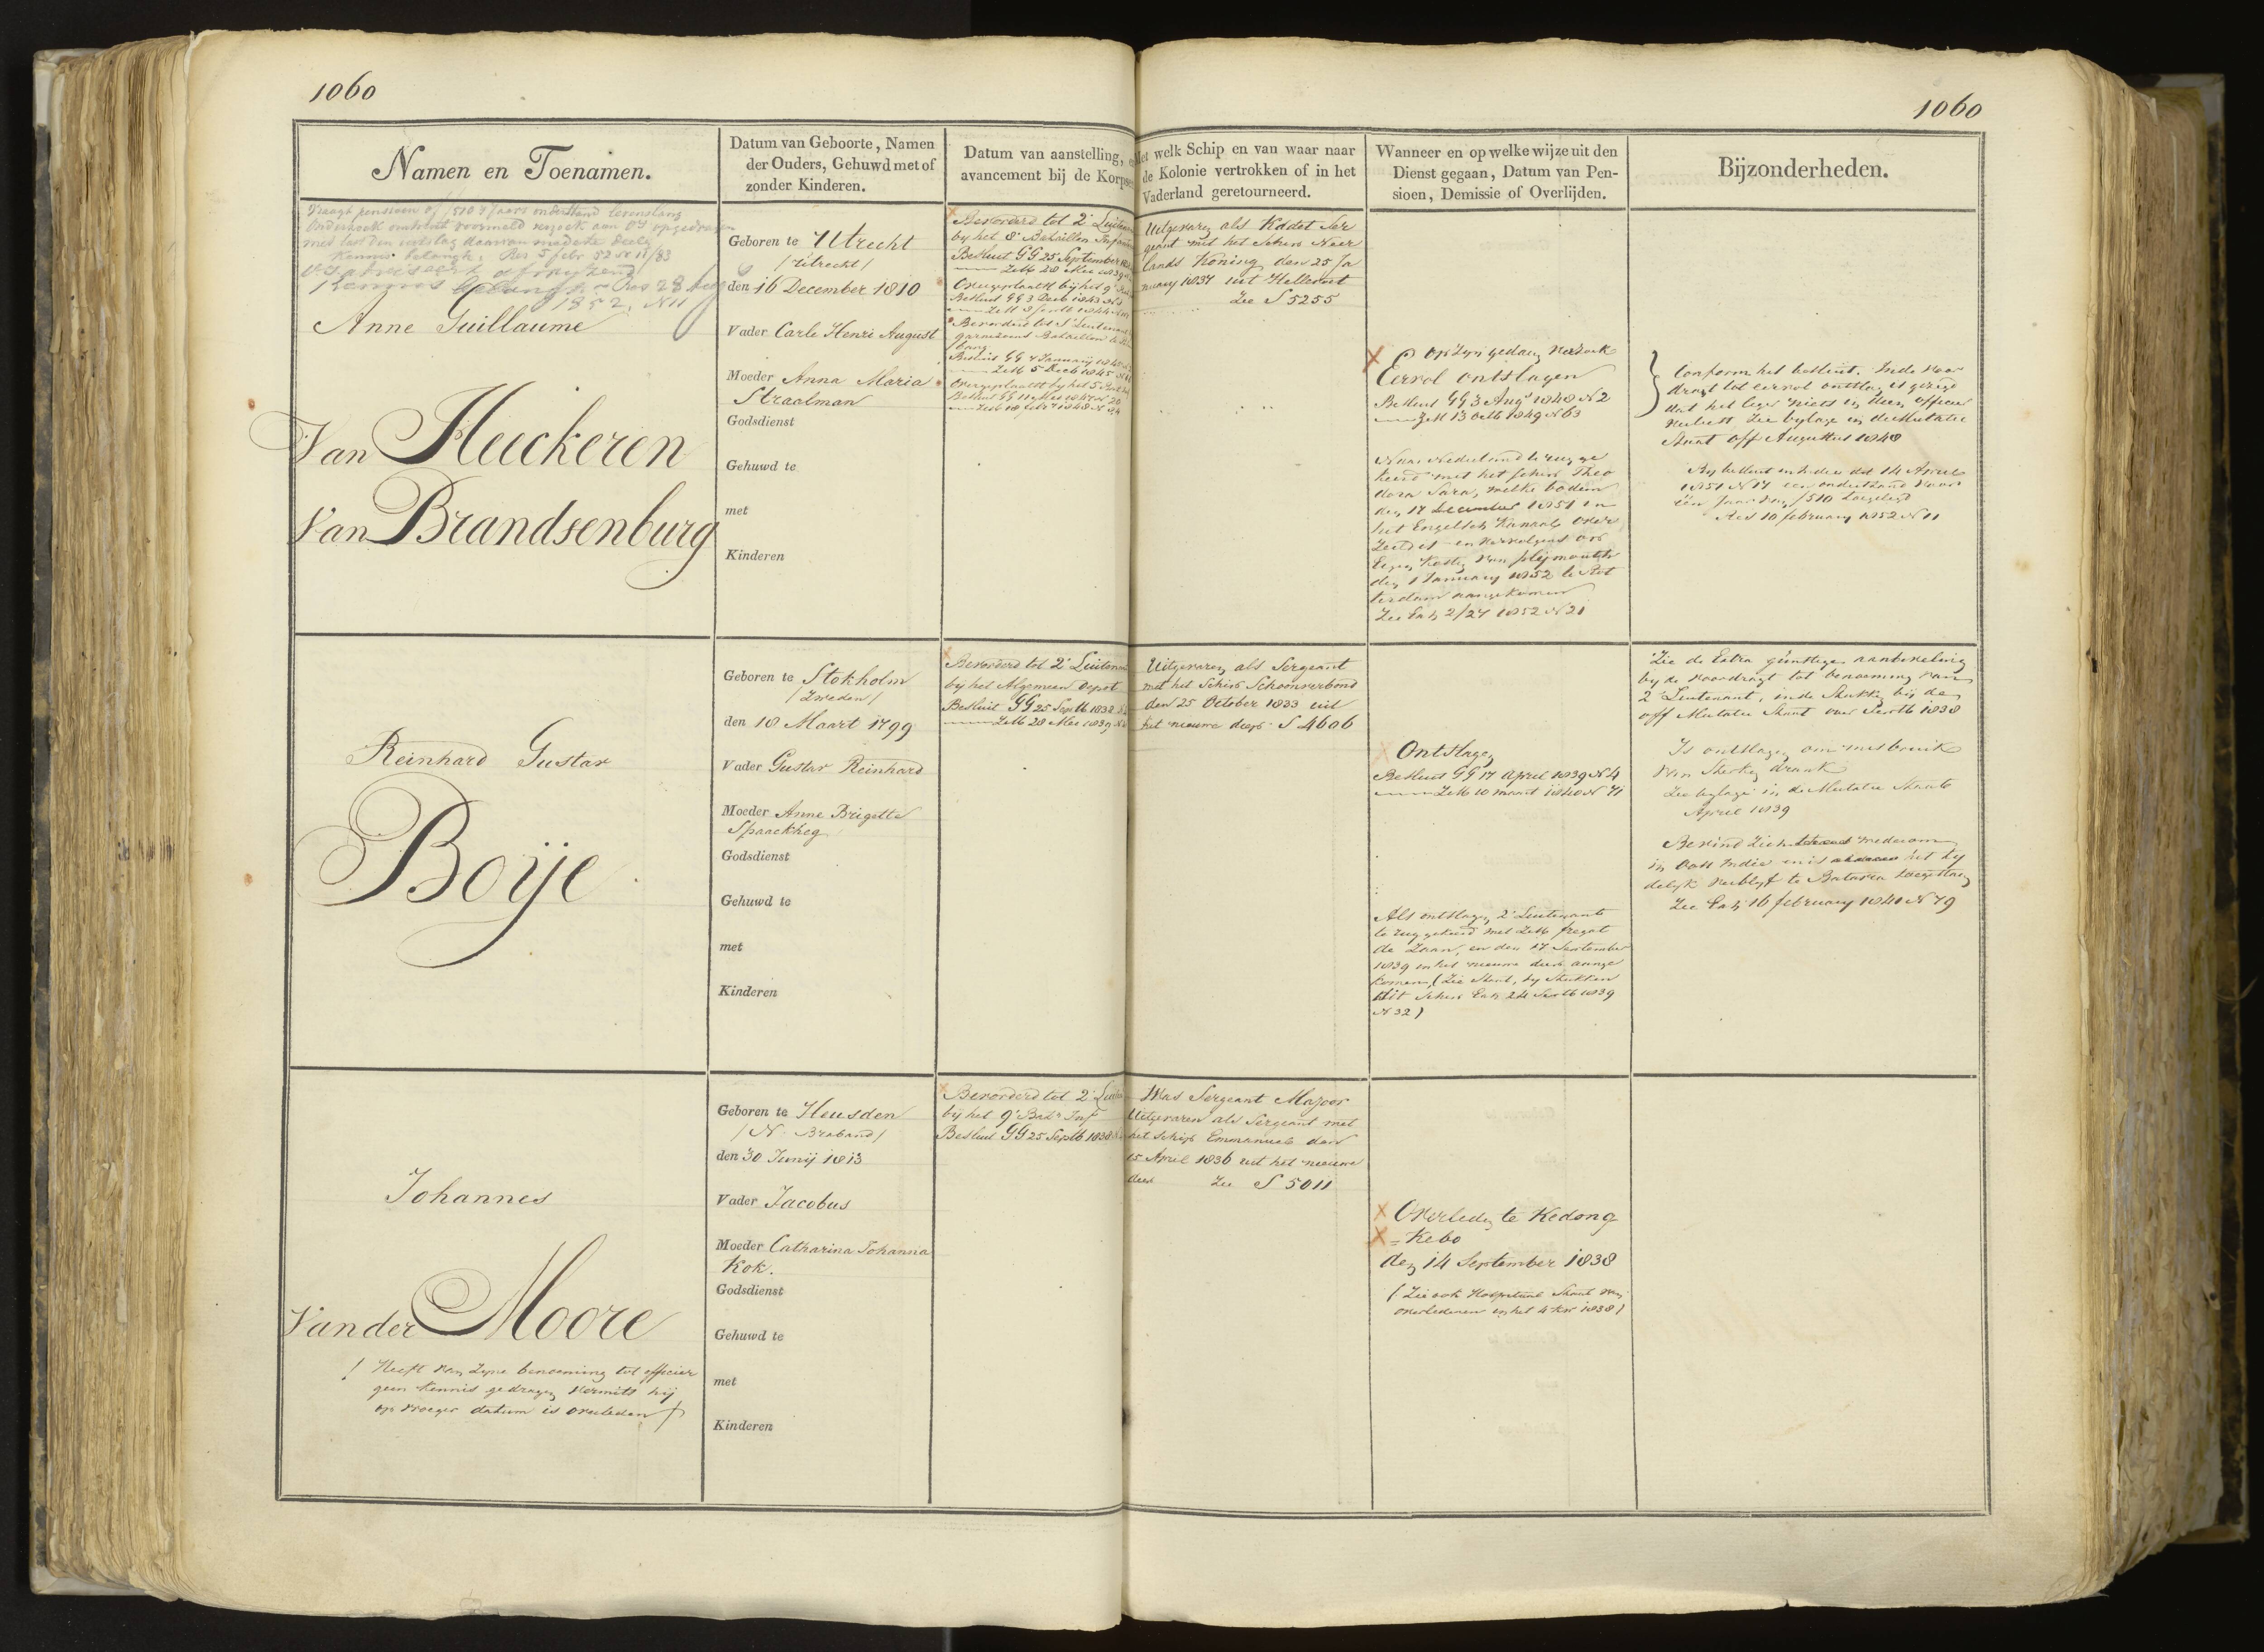 1060
1060
Namen en Toenamen.
Datum van Geboorte, Namen
der Ouders, Gehuwd met of
zonder Kinderen.
Datum van aanstelling,
avancement bij de Korpse
Met welk Schip en van waar naar
de Kolonie vertrokken of in het
Vaderland geretourneerd.
Wanneer en op welke wijze uit den
Dienst gegaan, Datum van Pen-
sioen, Demissie of Overlijden.
Bijzonderheden.
Vraagt pensioen of f 510 's jaars onderstand levenslang
Onderzoek omtrent voormeld verzoek aan OI opgedragen
Res 5 febr 52 N 11/83
1852. N 11
Anne Guillaume
Van Heeckeren
Van Brandsenburg
Geboren te Utrecht
/ Utrecht /
den 16 December 1810
Vader Carle Henri August
Moeder Anna Maria
Straalman
Godsdienst
Gehuwd te
met
Kinderen
Bevorderd tot 2e Luiten
bij het 8e Bataillon Infan
Besluit GG 25 September
Zelb 28 Mei 1839
Overgeplaatst bij het 9e
Besluit GG 3 Decb 1843
Bevorderd tot 1e Luitenant
garnizoens Bataillon
Besluit GG 4 Januarij 1845
Zelb 5 Decb 1845
Overgeplaatst bij het 5e
Besluit GG 11 Mei 1847 N 20
Zelb 18 febr 1848 N 24
Uitgevaren als Kadet Ser
geant met het Schip Neer
lands Koning den 25 Ja
nuary 1837 uit Hellevoet
Zie S 5255
Op zijn gedaan verzoek
Eervol ontslagen
Besluit GG 3 Augs 1848 N 2
Zelb 13 Octb 1849 N 63
Naar Nederland terug ge
keerd met het schip Theo
dora Sara, welke bodem
den 17 December 1851 in
het Engelsch Kanaal over
zeild is en vervolgens op
Eigen Kosten van plijmouth
den 1 January 1852 te Rot
terdam aangekomen
Zie Exh 2/27 1852 N 21
Conform het besluit. In de voor
dragt tot eervol ontslag is gezegd
dat het leger niets in dien officier
verliest Zie bylage in de Mutatie
Staat off Augustus 1848
By besluit in Indien dd 14 April
1851 N 17 een onderstand voor
één Jaar van f 510 toegelegd
Res 10 february 1852 N 11
Reinhard Gustav
Boije
Geboren te Stokholm
/ Zweden /
den 18 Maart 1799
Vader Gustav Reinhard
Moeder Anne Brigette
Spaackheg
Godsdienst
Gehuwd te
met
Kinderen
Bevorderd tot 2e Luitena
bij het Algemeen Depot
Besluit GG 25 Septb 1838
Zelb 28 Mei 1839
Uitgevaren als Sergeant
met het Schip Schoonverbond
den 25 October 1833 uit
het nieuwe diep S 4606
Ontslagen
Besluit GG 17 April 1839 N 4
Zelb 10 maart 1840 N 71
Als ontslagen 2e Luitenant
te rug gekeerd met ZM fregat
de Zaan, en den 17 September
1839 in het nieuwe diep aange
komen, (Zie Staat, by Stukken
dit Schip Exh 24 Septb 1839
N 32)
Zie de Extra gunstige aanbeveling
by de voordragt tot benoeming van
2e Luitenant, in de Stukken bij de
off Mutatie Staat over Septb 1838
Is ontslagen om misbruik
van Sterken drank
Zie bylage in de Mutatie Staat
April 1839
Bevind zich wederom
in Oost Indie en is het ty
delijk verblyf te Batavia toegestaan
Zie Exh 16 february 1841 N 79
Johannes
Van der Moore
( Heeft van zyne benoeming tot officier
geen kennis gedragen vermits hij
op vroeger datum is overleden )
Geboren te Heusden
/ N. Braband /
den 30 Junij 1813
Vader Jacobus
Moeder Catharina Johanna
Kok.
Godsdienst
Gehuwd te
met
Kinderen
Bevorderd tot 2e Luiten
bij het 9e Batn Inf
Besluit GG 25 Septb 1838
Was Sergeant Majoor
Uitgevaren als Sergeant met
het Schip Emmanuel den
15 April 1836 uit het nieuwe
diep Zie S 5011
Overleden te Kedong
= Kebo
den 14 September 1838
( Zie ook Hospitaal Staat van
overledenen in het 4 kw 1838 )